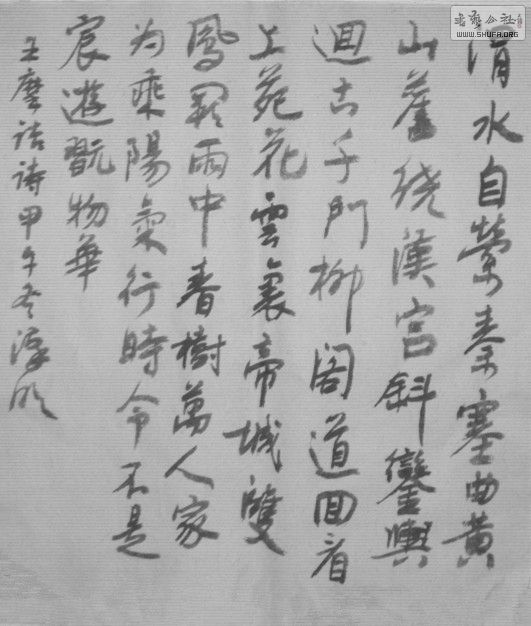 書藝公社
WWW.SHUFA.ORG
渭水自縈秦塞曲黃
山舊繞漢宮斜鑾輿
迴出千門柳閣道回看
上苑花雲裏帝城雙
鳳闕雨中春樹萬人家
為乘陽氣行時令不是
宸遊翫物華
王摩詰詩甲午冬